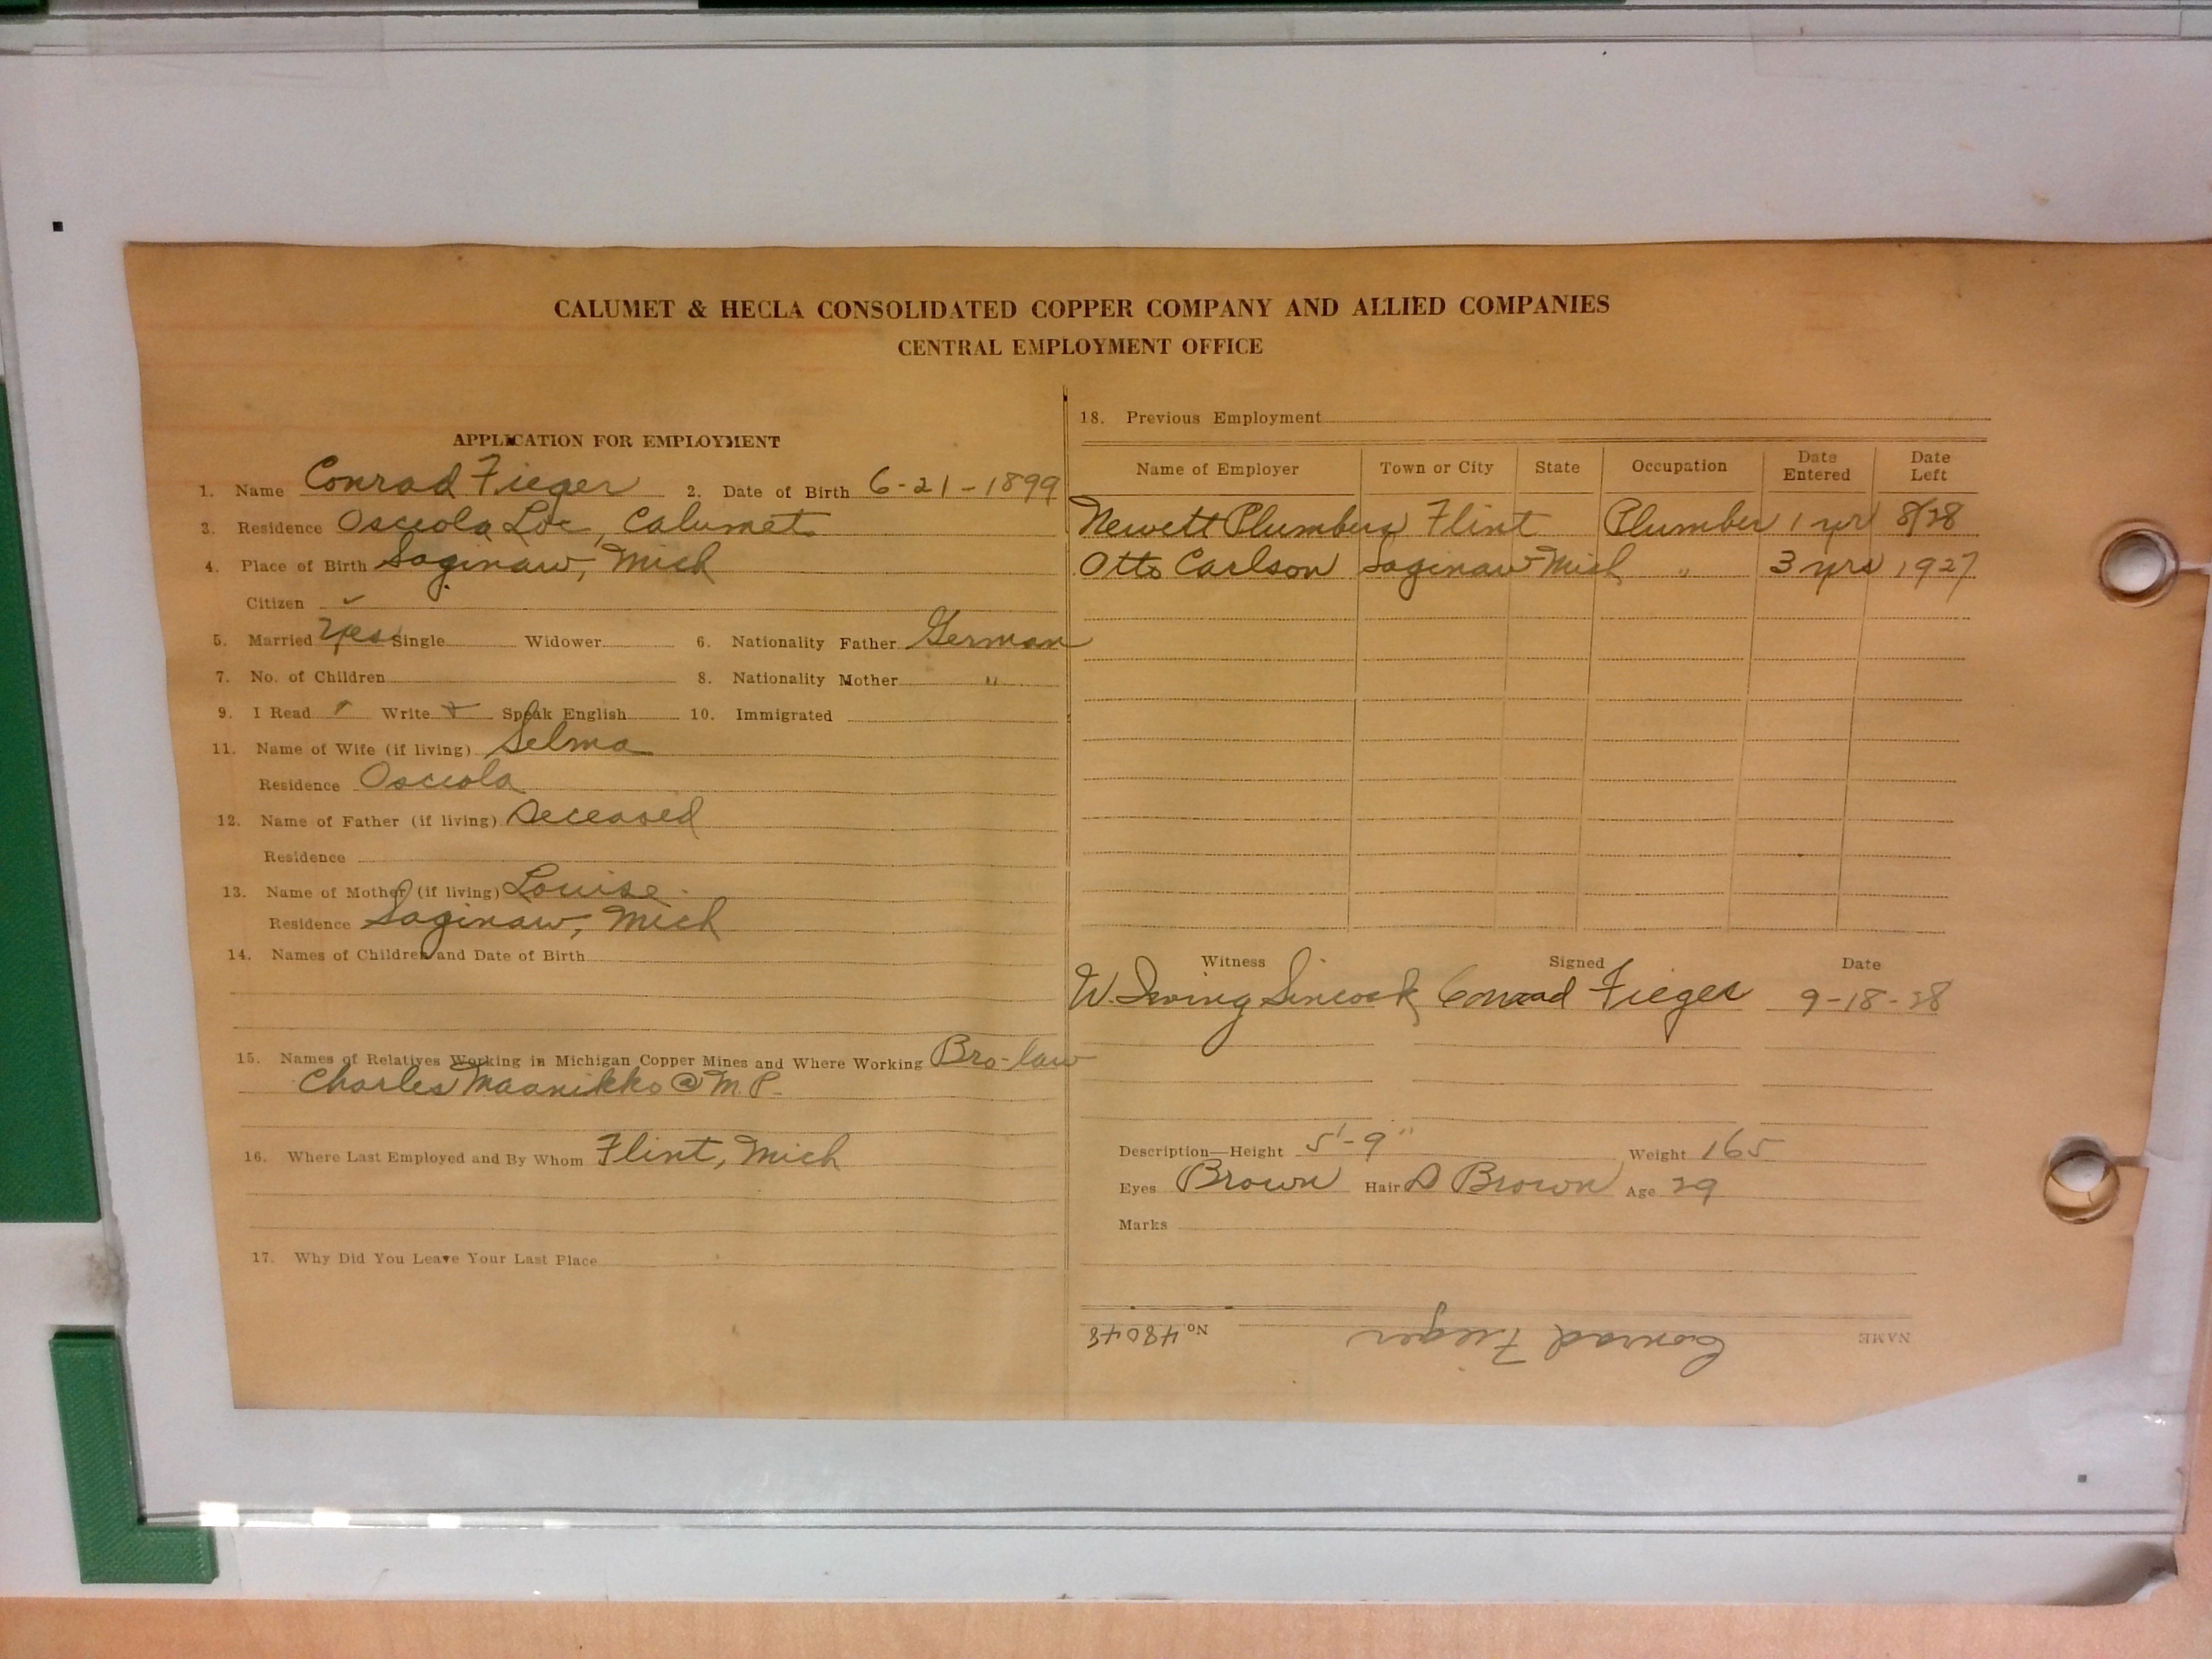 CALUMET & HECLA CONSOLIDATED COPPER COMPANY AND ALLIED COMPANIES
CENTRAL EMPLOYMENT OFFICE
APPLICATION FOR EMPLOYMENT
1. Name Conrad Fieger 2. Date of Birth 6-21-1899
3. Residence Osceola Loc, Calumet
4. Place of Birth Saginaw, Mich
Citizen ✓
5. Married Yes Single Widower 6. Nationality Father German
7. No. of Children 8. Nationality Mother "
9. I Read Write Speak English 10. Immigrated
11. Name of Wife (if living) Selma
Residence Osceola
12. Name of Father (if living) Deceased
Residence
13. Name of Mother (if living) Louise
Residence Saginaw, Mich
14. Names of Children and Date of Birth
15. Names of Relatives Working in Michigan Copper Mines and Where Working Bro-law
Charles Maanikko @ M.P.
16. Where Last Employed and By Whom Flint, Mich
17. Why Did You Leave Your Last Place
18. Previous Employment
Name of Employer Town or City State Occupation Date Entered Date Left
Newett Plumbers Flint Plumber 1 yr 8/28
Otto Carlson Saginaw Mich " 3 yrs 1927
Witness Signed Date
W. Irving Sincock Conrad Fieger 9-18-28
Description—Height 5'-9" Weight 165
Eyes Brown Hair D Brown Age 29
Marks
NAME Conrad Fieger No 48048